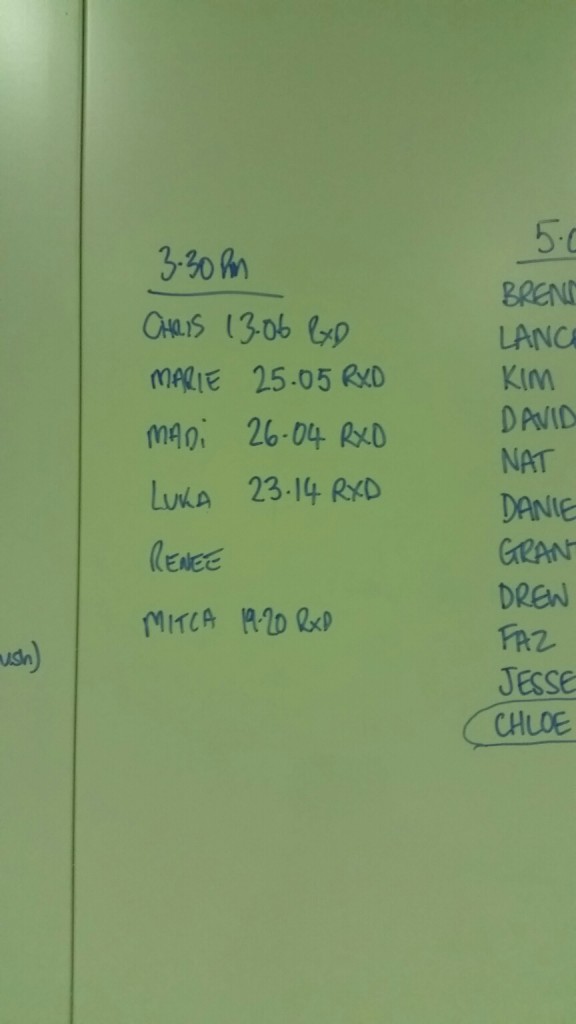 3.30 Pm
CHRIS 13.06 RXD
MARIE 25.05 RXD
MADi 26.04 RXD
LUKA 23.14 RXD
RENEE
MITCA 19.20 RXD
ush)
5.0
BREND
LANCE
KIM
DAVID
NAT
DANIE
GRANT
DREW
FAZ
JESSE
CHLOE